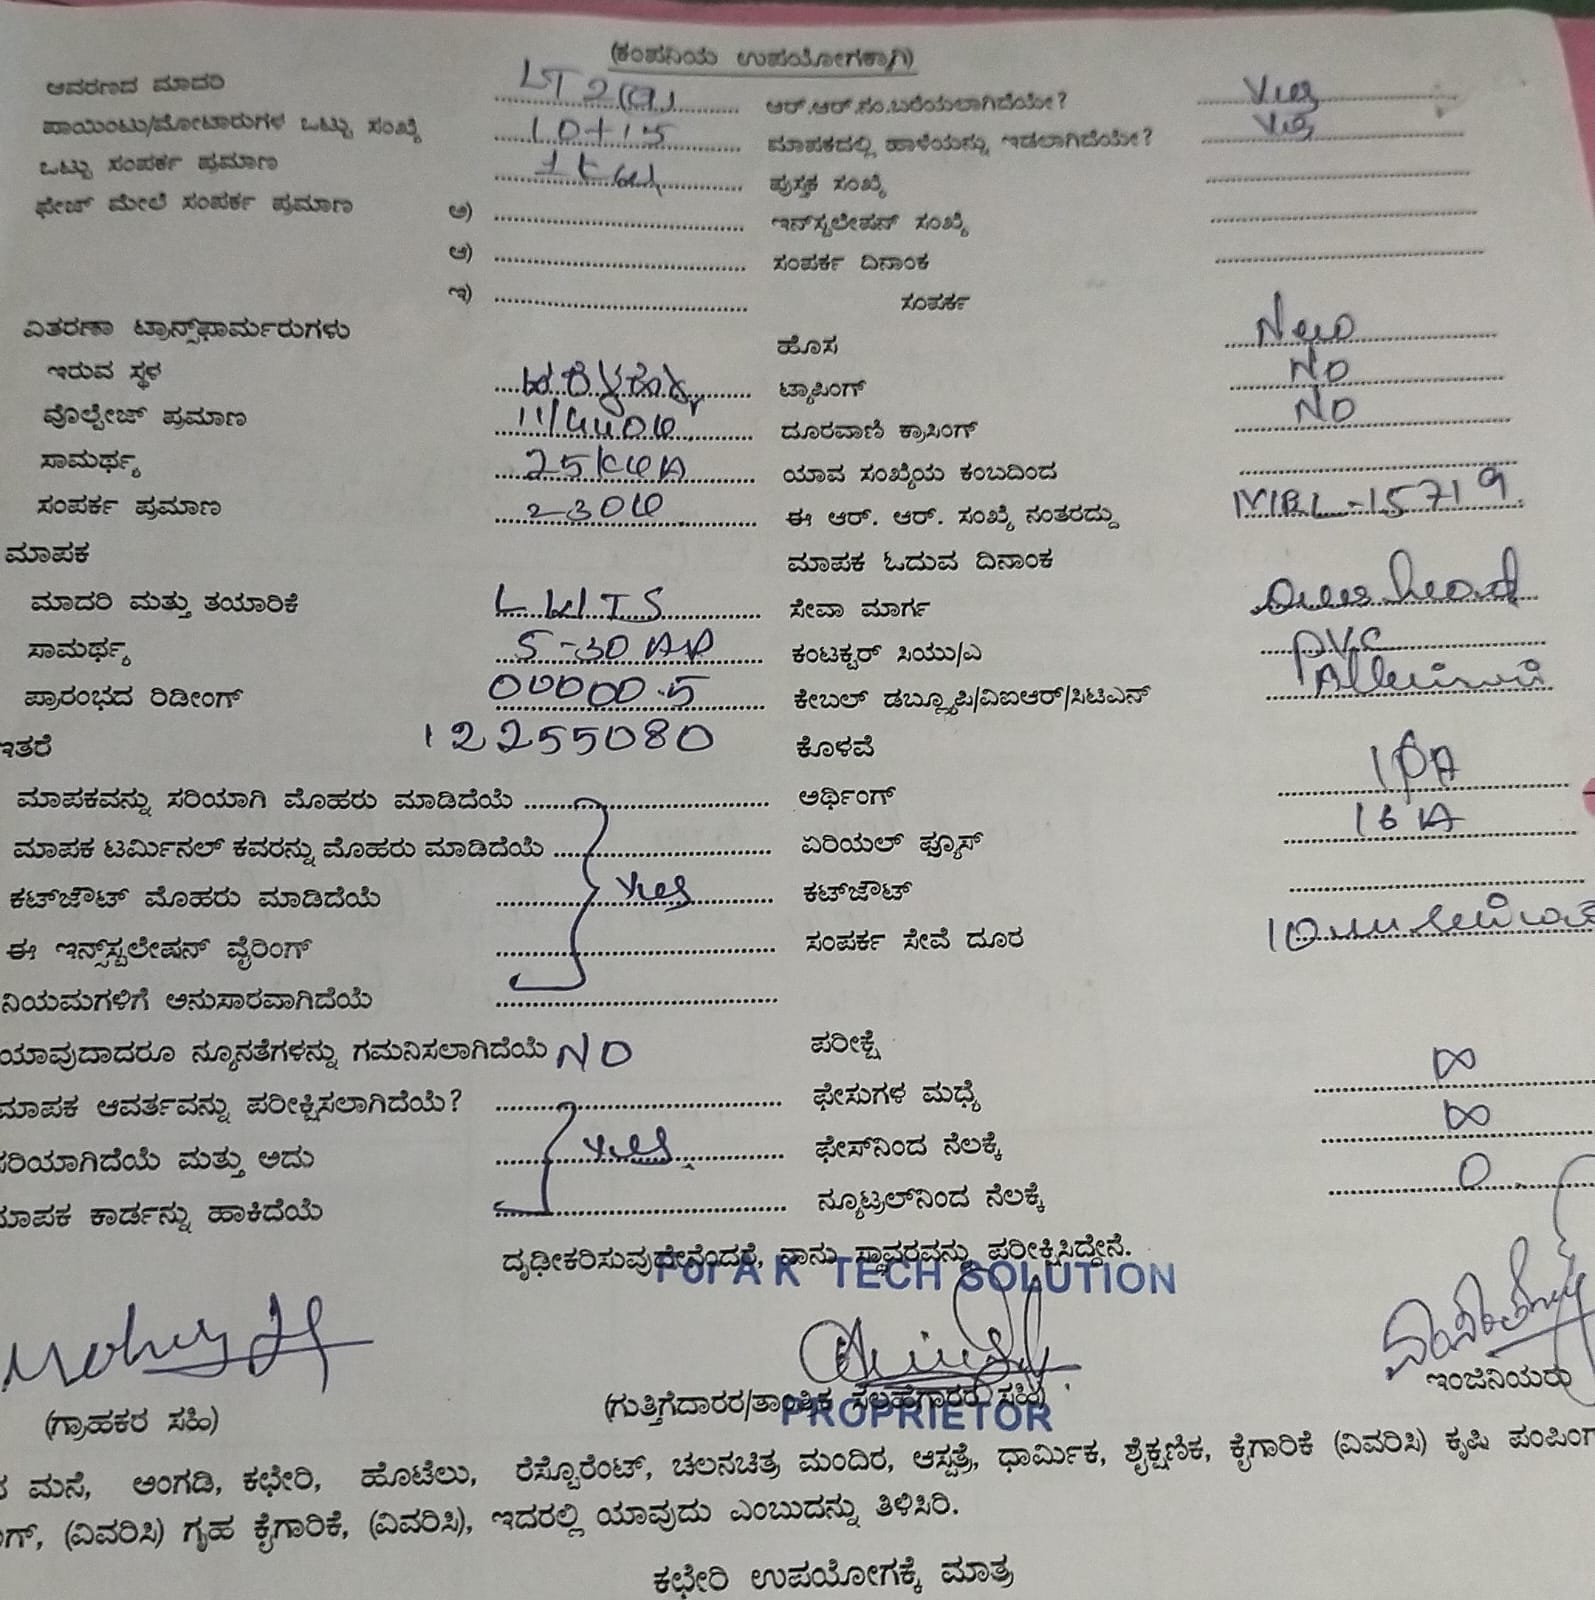 (ಕಂಪನಿಯ ಉಪಯೋಗಕ್ಕಾಗಿ)
ಆವರಣದ ಮಾದರಿ LT 2(a) ಆರ್.ಆರ್.ಸಂ.ಬರೆಯಲಾಗಿದೆಯೇ? Yes
ಪಾಯಿಂಟು/ಮೋಟಾರುಗಳ ಒಟ್ಟು ಸಂಖ್ಯೆ 10+15 ಮಾಪಕದಲ್ಲಿ ಹಾಳೆಯನ್ನು ಇಡಲಾಗಿದೆಯೇ? Yes
ಒಟ್ಟು ಸಂಪರ್ಕ ಪ್ರಮಾಣ 1 kw ಪುಸ್ತಕ ಸಂಖ್ಯೆ
ಫೇಜ್ ಮೇಲೆ ಸಂಪರ್ಕ ಪ್ರಮಾಣ ಅ) ಇನ್‌ಸ್ಟಲೇಷನ್ ಸಂಖ್ಯೆ
ಆ) ಸಂಪರ್ಕ ದಿನಾಂಕ
ಇ) ಸಂಪರ್ಕ
ವಿತರಣಾ ಟ್ರಾನ್ಸ್‌ಫಾರ್ಮರುಗಳು ಹೊಸ New
ಇರುವ ಸ್ಥಳ ಟ್ಯಾಪಿಂಗ್ NO
ವೊಲ್ಟೇಜ್ ಪ್ರಮಾಣ 11/440V ದೂರವಾಣಿ ಕ್ರಾಸಿಂಗ್ NO
ಸಾಮರ್ಥ್ಯ 25 KVA ಯಾವ ಸಂಖ್ಯೆಯ ಕಂಬದಿಂದ
ಸಂಪರ್ಕ ಪ್ರಮಾಣ 230V ಈ ಆರ್. ಆರ್. ಸಂಖ್ಯೆ ನಂತರದ್ದು -15719
ಮಾಪಕ ಮಾಪಕ ಓದುವ ದಿನಾಂಕ
ಮಾದರಿ ಮತ್ತು ತಯಾರಿಕೆ ಸೇವಾ ಮಾರ್ಗ Over head
ಸಾಮರ್ಥ್ಯ 5-30 ಕಂಟಕ್ಟರ್ ಸಿಯು/ಎ PVC
ಪ್ರಾರಂಭದ ರಿಡೀಂಗ್ 00000.5 ಕೇಬಲ್ ಡಬ್ಲ್ಯೂಪಿ/ವಿಐಆರ್/ಸಿಟಿಎನ್
ಇತರೆ 12255080 ಕೊಳವೆ
ಮಾಪಕವನ್ನು ಸರಿಯಾಗಿ ಮೊಹರು ಮಾಡಿದೆಯೆ ಅರ್ಥಿಂಗ್
ಮಾಪಕ ಟರ್ಮಿನಲ್ ಕವರನ್ನು ಮೊಹರು ಮಾಡಿದೆಯೆ ಏರಿಯಲ್ ಫ್ಯೂಸ್ 16 A
ಕಟ್‌ಜೌಟ್ ಮೊಹರು ಮಾಡಿದೆಯೆ Yes ಕಟ್‌ಜೌಟ್
ಈ ಇನ್ಸ್‌ಸ್ಟಲೇಷನ್ ವೈರಿಂಗ್ ಸಂಪರ್ಕ ಸೇವೆ ದೂರ
ನಿಯಮಗಳಿಗೆ ಅನುಸಾರವಾಗಿದೆಯೆ
ಯಾವುದಾದರೂ ನ್ಯೂನತೆಗಳನ್ನು ಗಮನಿಸಲಾಗಿದೆಯೆ NO ಪರೀಕ್ಷೆ
ಮಾಪಕ ಆವರ್ತವನ್ನು ಪರೀಕ್ಷಿಸಲಾಗಿದೆಯೆ? ಫೇಸುಗಳ ಮಧ್ಯೆ ∞
ಸರಿಯಾಗಿದೆಯೆ ಮತ್ತು ಅದು Yes ಫೇಸ್‌ನಿಂದ ನೆಲಕ್ಕೆ ∞
ಮಾಪಕ ಕಾರ್ಡನ್ನು ಹಾಕಿದೆಯೆ ನ್ಯೂಟ್ರಲ್‌ನಿಂದ ನೆಲಕ್ಕೆ 0
ದೃಢೀಕರಿಸುವುದೇನೆಂದರೆ, ನಾನು ಸ್ಥಾವರವನ್ನು ಪರೀಕ್ಷಿಸಿದ್ದೇನೆ.
For A K TECH SOLUTION
ಇಂಜಿನಿಯರು
(ಗ್ರಾಹಕರ ಸಹಿ) (ಗುತ್ತಿಗೆದಾರರ/ತಾಂತ್ರಿಕ ಸಲಹೆಗಾರರ ಸಹಿ)
PROPRIETOR
ಮನೆ, ಅಂಗಡಿ, ಕಛೇರಿ, ಹೊಟೆಲು, ರೆಸ್ಟೊರೆಂಟ್, ಚಲನಚಿತ್ರ ಮಂದಿರ, ಆಸ್ಪತ್ರೆ, ಧಾರ್ಮಿಕ, ಶೈಕ್ಷಣಿಕ, ಕೈಗಾರಿಕೆ (ವಿವರಿಸಿ) ಕೃಷಿ ಪಂಪಿಂಗ್
(ವಿವರಿಸಿ) ಗೃಹ ಕೈಗಾರಿಕೆ, (ವಿವರಿಸಿ), ಇದರಲ್ಲಿ ಯಾವುದು ಎಂಬುದನ್ನು ತಿಳಿಸಿರಿ.
ಕಛೇರಿ ಉಪಯೋಗಕ್ಕೆ ಮಾತ್ರ